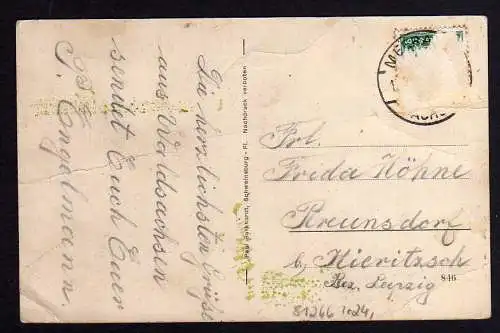 Die herzlichsten Grüße
aus Waldsachsen
sendet Euch Euer
G. Engelmann.
Schweinsburg-Pl. Nachdruck verboten
Frl.
Frida Köhne
Kreunsdorf
b/ Kieritzsch
Bez. Leipzig
846
81266 1924